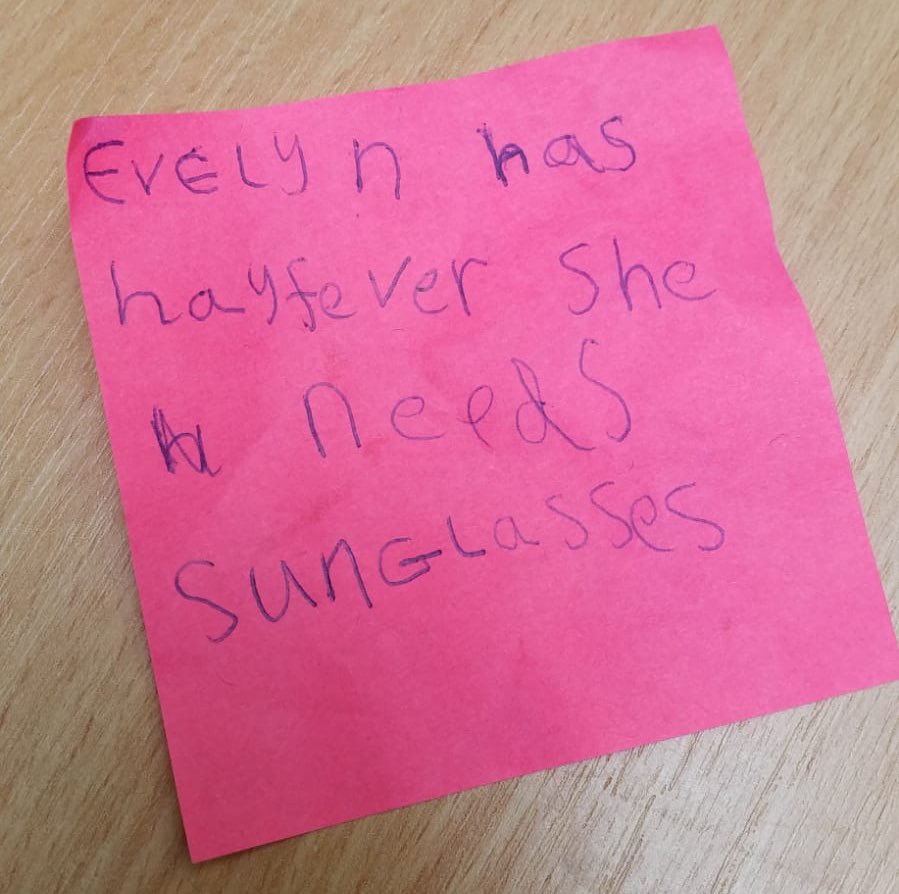 EvELyn has
hayfever She
needs
SunGLasses